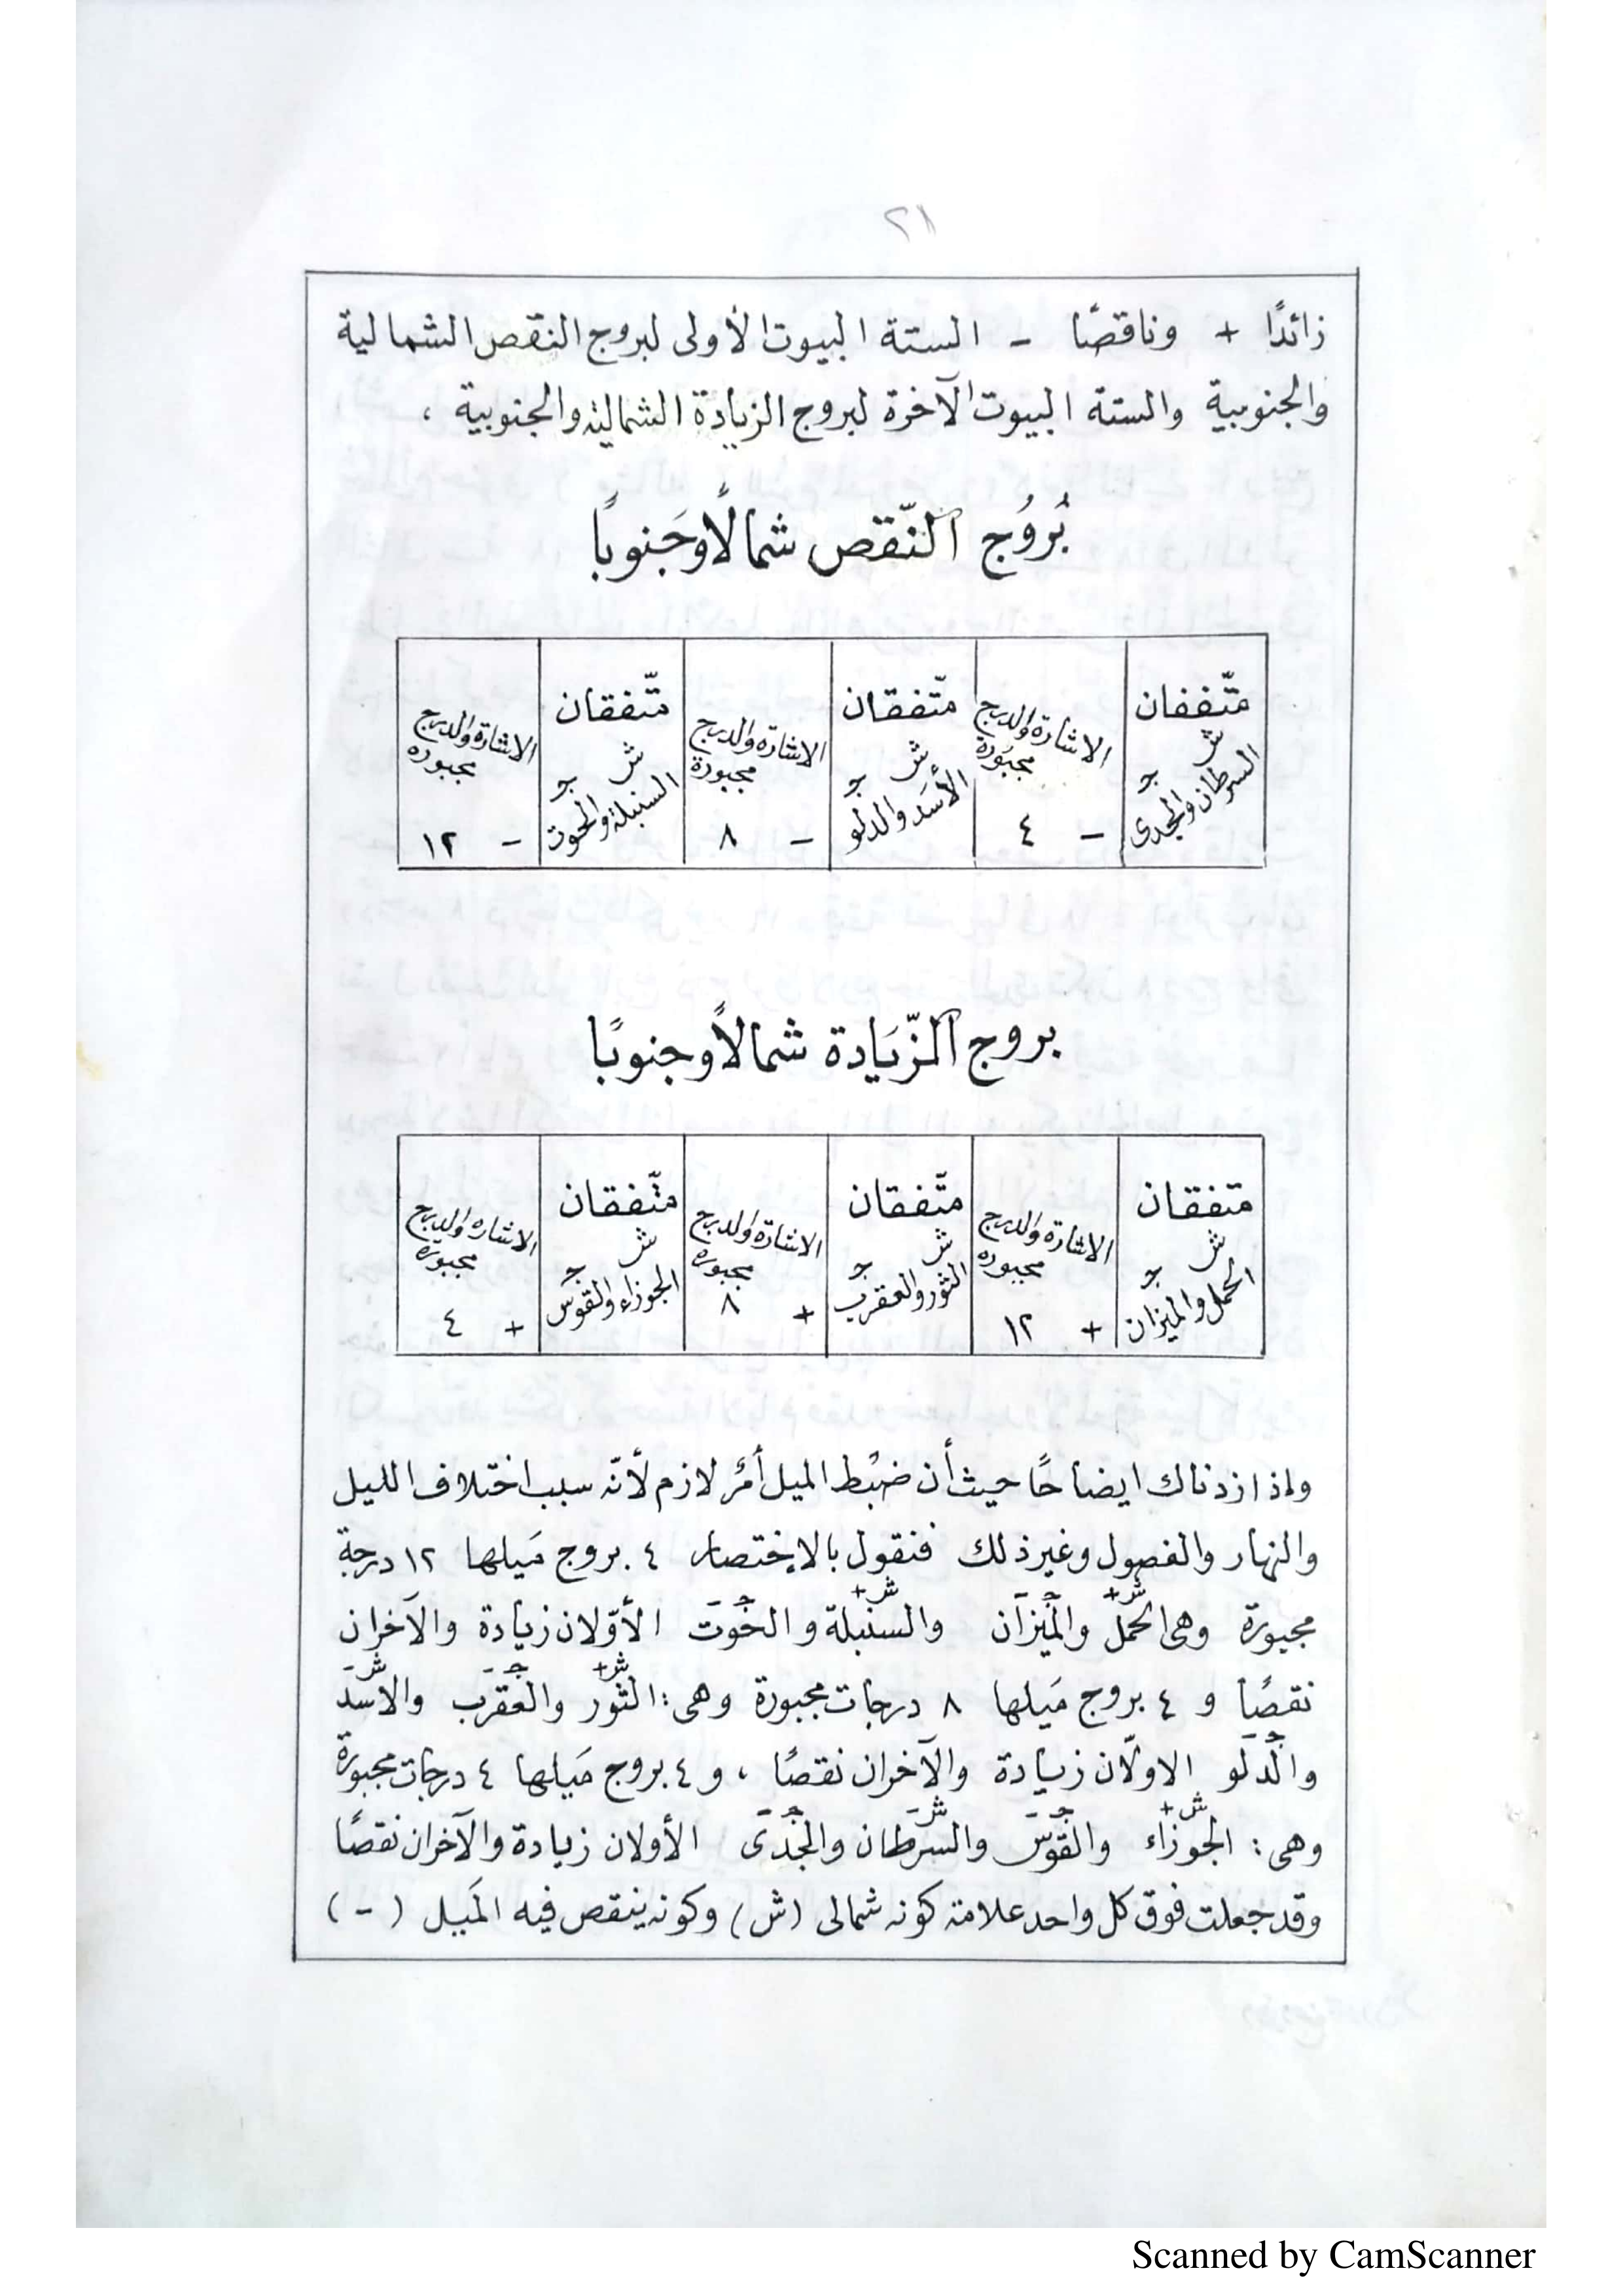 ١٢
زائدًا + وناقصًا - الستة البيوت الأولى لبروج النقص الشمالية
والجنوبية والستة البيوت الآخرة لبروج الزيادة الشمالية والجنوبية ،
بُرُوُج النّقص شمالًا وَجَنوبًا
متّفقان ش ج السرطان والجدى
الاشارة والدرج مجبُورة - ٤
متّفقان ش ج الأسَد والدلو
الاشارة والدرج مجبورة - ٨
متّفقان ش ج السنبلة والحوت
الاشارة والدرج مجبوره - ١٢
بروج الزّيَادة شمالاً وجنوبًا
متفقان ش ج الحمل والميزان
الاشارة والدرج مجبوره + ١٢
متّفقان ش ج الثور والعقرب
الاشارة والدرج مجبورة + ٨
متّفقان ش ج الجوزاء والقوس
الاشاره والدرج مجبورة + ٤
واذا زدناك ايضاحًا حيث أن ضبْط الميل أمرٌ لازم لأنّه سبب اختلاف الليل
والنهار والفصول وغير ذلك فنقول بالاختصار ٤ بروج مَيلها ١٢ درجة
ش+ ج- ش+ ج-
مجبورة وهى الحمل والميزان والسنبلة والحوت الأوّلان زيادة والآخران
ش+ ج- ش-
نقصًا و ٤ بروج مَيلها ٨ درجات مجبورة وهى : الثور والعقرب والاسد
ج-
والدلو الاولّان زيادة والآخران نقصًا ، و ٤ بروج مَيلها ٤ درجات مجبورة
ش+ ج- ش- ج-
وهى : الجوزاء والقوس والسرطان والجدى الأولان زيادة والآخران نقصًا
وقد جعلت فوق كل واحد علامة كونه شمالى (ش) وكونه ينقص فيه المَيل ( - )
Scanned by CamScanner